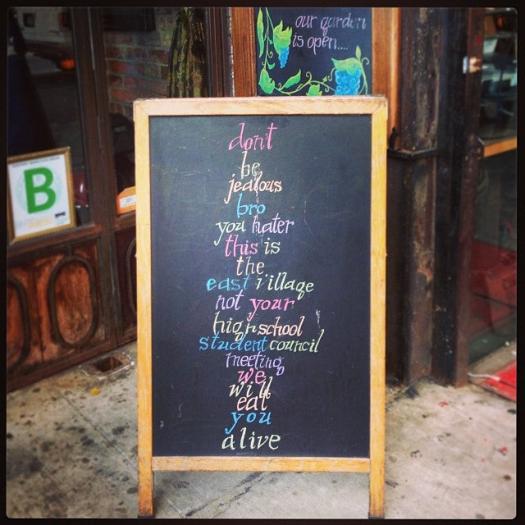 our garden
is open....
B
don't
be
jealous
bro
you hater
this is
the
east village
not your
high school
student council
meeting
we
will
eat
you
alive